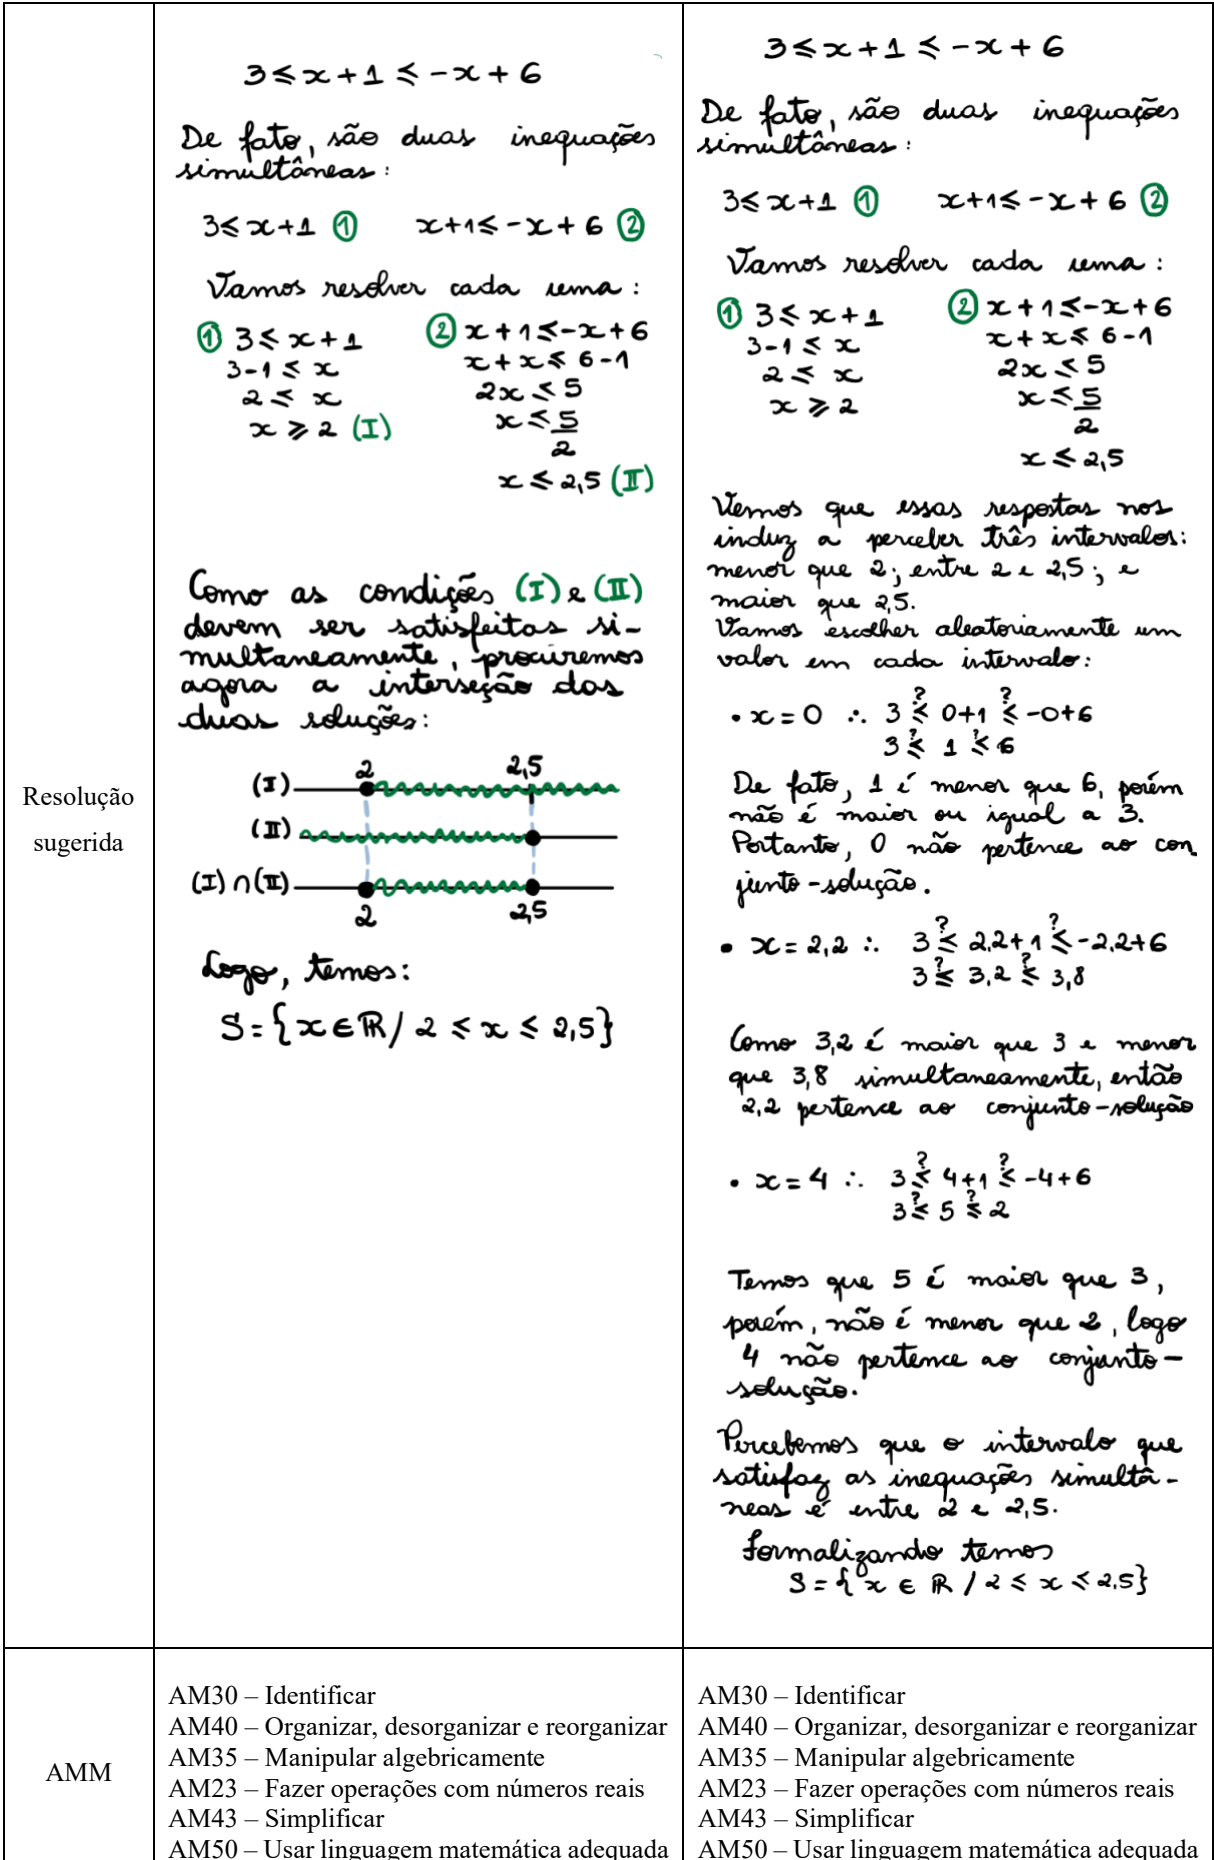 Resolução
sugerida
3 ≤ x + 1 ≤ -x + 6
De fato, são duas inequações
simultâneas:
3 ≤ x+1 ① x+1 ≤ -x + 6 ②
Vamos resolver cada uma:
① 3 ≤ x + 1 ② x + 1 ≤ -x + 6
3-1 ≤ x x + x ≤ 6-1
2 ≤ x 2x ≤ 5
x ≥ 2 (I) x ≤ 5/2
x ≤ 2,5 (II)
Como as condições (I) e (II)
devem ser satisfeitas si-
multaneamente, procuremos
agora a interseção das
duas soluções:
2 2,5
(I)
(II)
(I) ∩ (II)
2 2,5
Logo, temos:
S = { x ∈ ℝ / 2 ≤ x ≤ 2,5}
3 ≤ x + 1 ≤ -x + 6
De fato, são duas inequações
simultâneas:
3 ≤ x+1 ① x+1 ≤ -x + 6 ②
Vamos resolver cada uma:
① 3 ≤ x + 1 ② x + 1 ≤ -x + 6
3-1 ≤ x x + x ≤ 6-1
2 ≤ x 2x ≤ 5
x ≥ 2 x ≤ 5/2
x ≤ 2,5
Vemos que essas respostas nos
induz a perceber três intervalos:
menor que 2; entre 2 e 2,5; e
maior que 2,5.
Vamos escolher aleatoriamente um
valor em cada intervalo:
• x = 0 ∴ 3 ≤? 0+1 ≤? -0+6
3 ≤? 1 ≤? 6
De fato, 1 é menor que 6, porém
não é maior ou igual a 3.
Portanto, 0 não pertence ao con
junto-solução.
• x = 2,2 ∴ 3 ≤? 2,2+1 ≤? -2,2+6
3 ≤? 3,2 ≤? 3,8
Como 3,2 é maior que 3 e menor
que 3,8 simultaneamente, então
2,2 pertence ao conjunto-solução
• x = 4 ∴ 3 ≤? 4+1 ≤? -4+6
3 ≤? 5 ≤? 2
Temos que 5 é maior que 3,
porém, não é menor que 2, logo
4 não pertence ao conjunto-
solução.
Percebemos que o intervalo que
satisfaz as inequações simultâ-
neas é entre 2 e 2,5.
Formalizando temos
S = { x ∈ ℝ / 2 ≤ x ≤ 2,5}
AMM
AM30 – Identificar
AM40 – Organizar, desorganizar e reorganizar
AM35 – Manipular algebricamente
AM23 – Fazer operações com números reais
AM43 – Simplificar
AM50 – Usar linguagem matemática adequada
AM30 – Identificar
AM40 – Organizar, desorganizar e reorganizar
AM35 – Manipular algebricamente
AM23 – Fazer operações com números reais
AM43 – Simplificar
AM50 – Usar linguagem matemática adequada